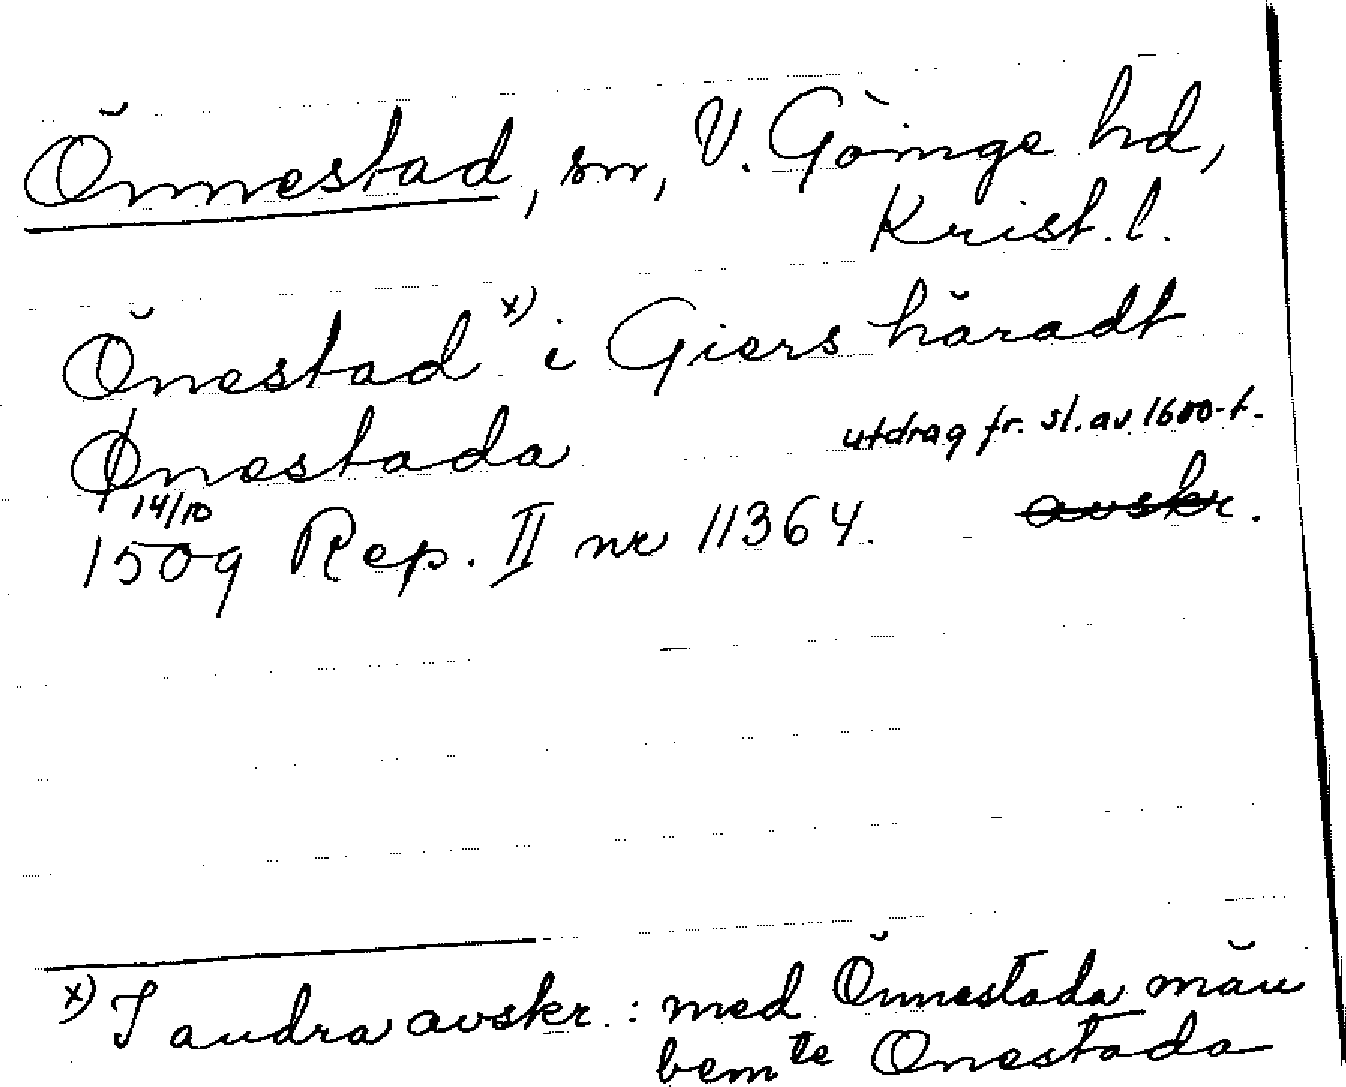 Önnestad, sn, V. Göinge hd,
Krist. l.
Önestad x) i Giers häradt
Ønestada utdrag fr. sl. av 1600-t.
14/10 avskr.
1509 Rep. II nr 11364.
x) I andra avskr.: med Önnestada män
bemte Onestada